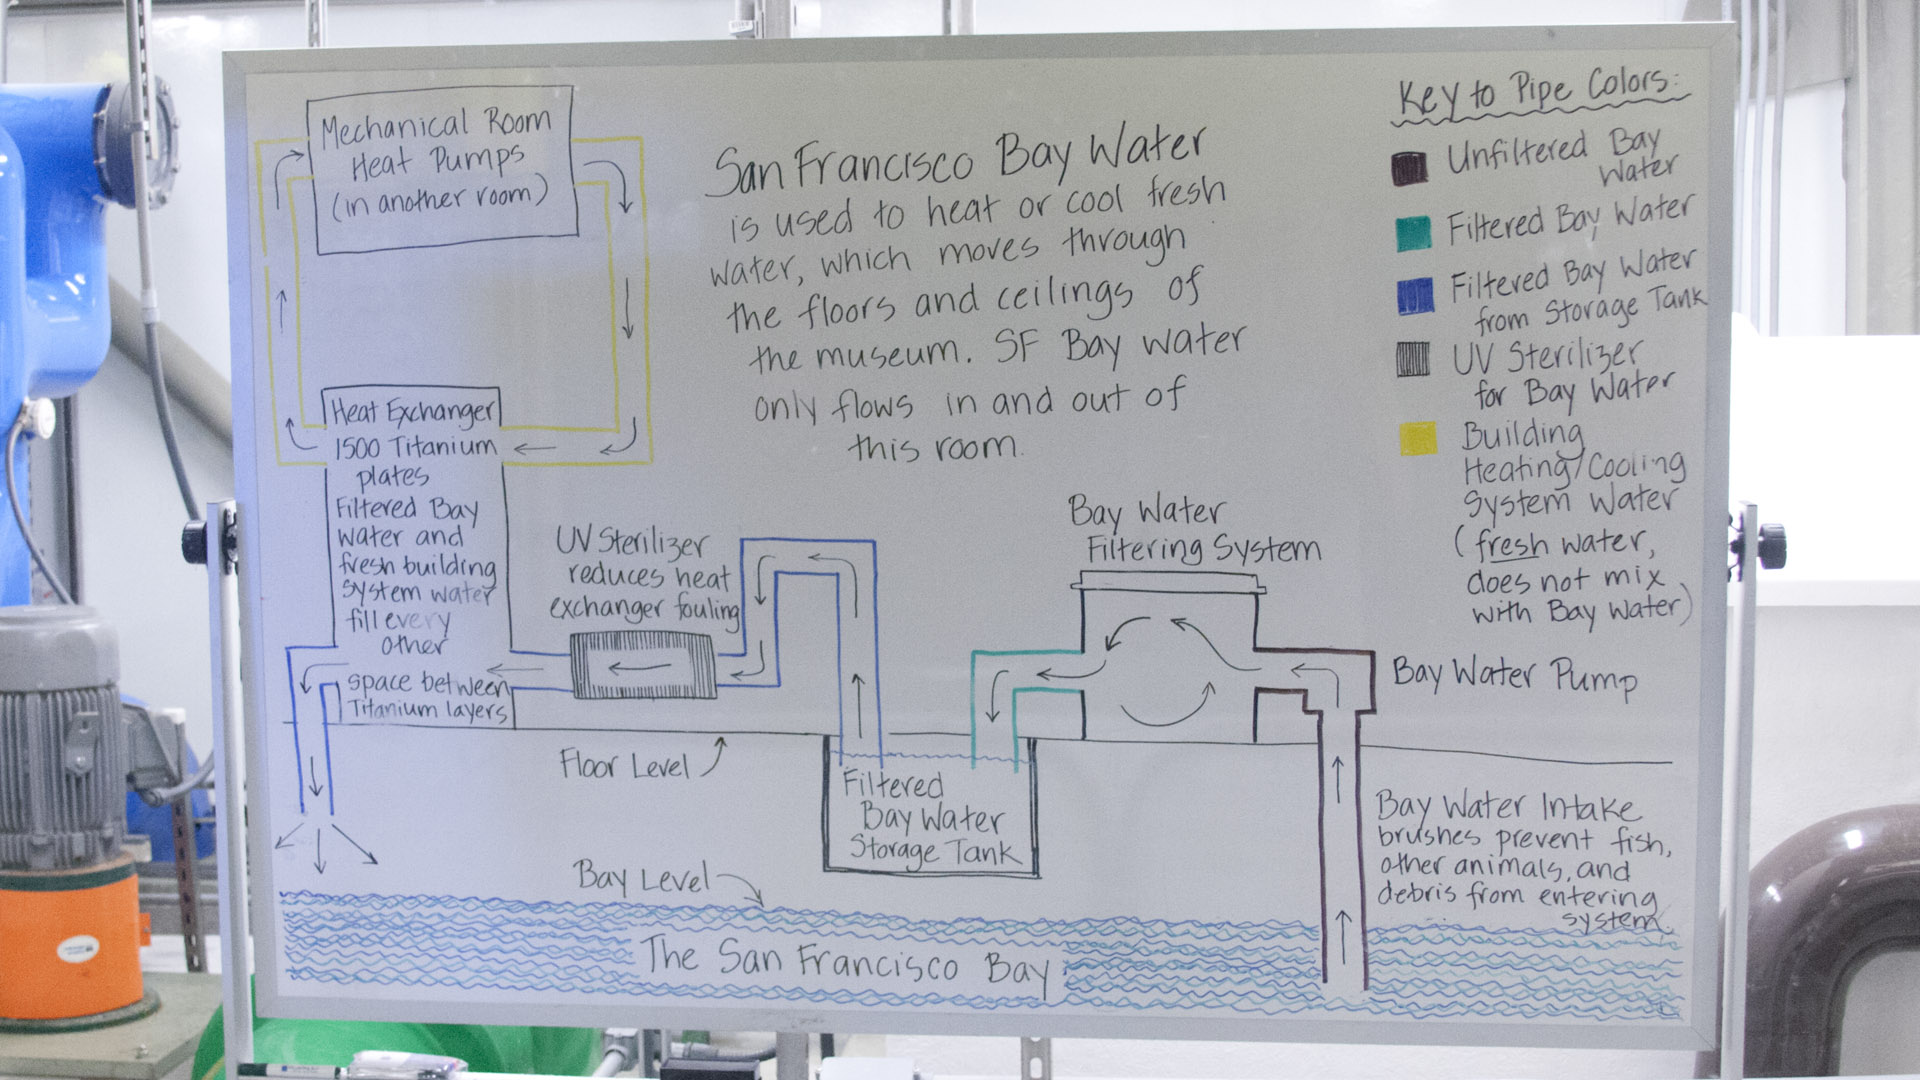 Mechanical Room
Heat Pumps
(in another room)
San Francisco Bay Water
is used to heat or cool fresh
water, which moves through
the floors and ceilings of
the museum. SF Bay water
only flows in and out of
this room.
Key to Pipe Colors:
Unfiltered Bay
Water
Filtered Bay Water
Filtered Bay Water
from Storage Tank
UV Sterilizer
for Bay Water
Building
Heating/Cooling
System Water
(fresh water,
does not mix
with Bay Water)
Heat Exchanger
1500 Titanium
plates
Filtered Bay
Water and
fresh building
System water
fill every
other
space between
Titanium layers
UV Sterilizer
reduces heat
exchanger fouling
Bay Water
Filtering System
Bay Water Pump
Floor Level
Filtered
Bay Water
Storage Tank
Bay Water Intake
brushes prevent fish,
other animals, and
debris from entering
system.
Bay Level
The San Francisco Bay